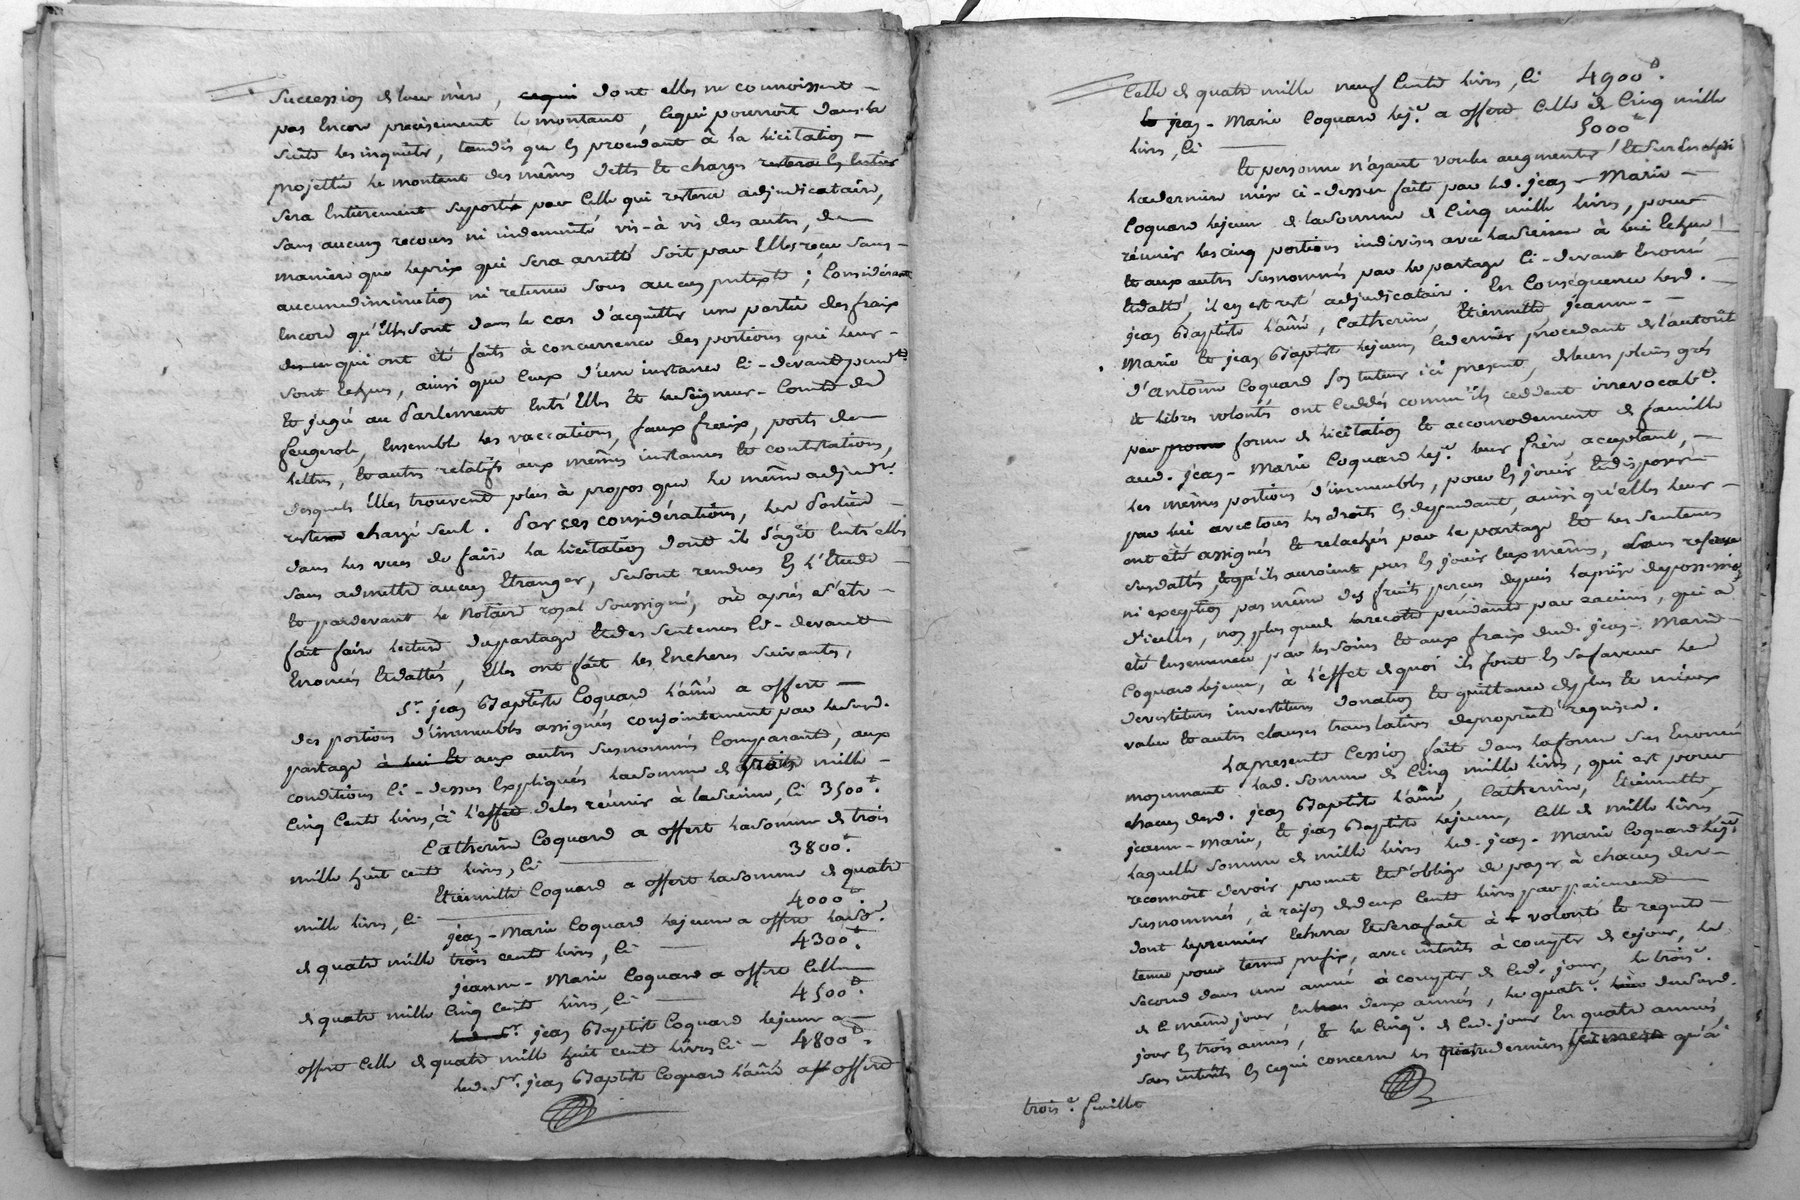 Succession de leur mère, cequi dont elles ne connoissent
pas Encore precisement le montant, cequi pourroit dans la
suite les inquiéter, tandis que En procedant à la licitation
projettée le montant des mêmes dettes et charges restera En Entier
sera Entierement suporté par Celle qui restera adjudicataire,
sans aucun recours ni indemnité vis-à vis des autres, de
maniere que le prix qui sera arretté soit par Elles reçu sans
aucune diminution ni retenue sous aucun pretexte; Considérant
Encore qu'Elles sont dans le cas d'acquitter une partie des frais
qui ont été faits à concurrence des portions qui leur
sont Echues, ainsi que Ceux d'une instance Ci-devant pend.te
et jugée au Parlement Entr'Elles et le Seigneur-Comte de
feugerole, Ensemble les vaccations, faux fraix, ports de
lettres, et autres relatifs aux mêmes instances et contestations,
desquels Elles trouvent plus à propos que le même adjud.re
reste chargé seul. Par ces considérations, les Parties
dans les vues de faire la licitation dont il s'agit Entr'elles
sans admettre aucun Etranger, se sont rendues En l'Etude
et pardevant le Notaire royal soussigné, où après s'être
fait faire lecture du partage et des sentences Ci-devant
Enoncés et dattés, Elles ont fait les Encheres suivantes,
S.r jean Baptiste Coquard l'aîné a offert
des portions d'immeubles assignées conjointement par le susd.
partage à lui et aux autres susnommés Comparants, aux
conditions Ci-dessus Expliquées la somme de trois mille
Cinq Cents livres, à l'effet de les réunir à la sienne, Ci 3500.tt
Catherine Coquard a offert la somme de trois
mille huit cents livres, Ci 3800.tt
Etiennette Coquard a offert la somme de quatre
mille livres, Ci 4000.tt
jean-Marie Coquard lejeune a offert la so.e
de quatre mille trois cents livres, Ci 4300.tt
jeanne-Marie Coquard a offert Celle
de quatre mille Cinq Cents livres, Ci 4500.tt
led. S.r jean Baptiste Coquard lejeune a
offert celle de quatre mille huit cents livres Ci 4800.tt
led. S.r jean Baptiste Coquard l'aîné a offert
Celle de quatre mille neuf Cents livres, Ci 4900.tt
le jean-Marie Coquard lej.e a offert Celle de Cinq mille
livres, Ci 5000.tt
Et personne n'ayant voulu augmenter
la derniere mise ci-dessus faite par led. jean-Marie
Coquard lejeune de la somme de Cinq mille livres, pour
réunir les cinq portions indivises avec la sienne à lui Echue
et aux autres susnommés par le partage Ci-devant Enoncé
et datté, il en est resté adjudicataire. En Conséquence lesd.
jean Baptiste l'aîné, Catherine, Etiennette, jeanne-
Marie et jean Baptiste lejeune, ce dernier procedant de l'autorité
d'Antoine Coquard son tuteur ici present, de leurs pleins grés
et libres volontés ont Ceddés comm'ils ceddent irrevocabl.t
par forme de licitation et accomodement de famille
aud. jean-Marie Coquard lej.e leur frère, acceptant,
les mêmes portions d'immeubles, pour En jouir et disposer
par lui avec tous les droits En dependants, ainsi qu'elles leur
ont été assignées et relachées par le partage et les sentences
susdattés, et qu'ils auroient pus En jouir Eux mêmes, sans reserve
ni exception pas même des fruits perçus depuis la prise de possession
d'icelles, non plus que la recolte pendante par racines, qui a
été Ensemencée par les soins et aux fraix dud. jean-Marie
Coquard lejeune, à l'effet de quoi ils font En sa faveur les
devestitures investitures donation et quittance de plus et mieux
value et autres clauses translatives de proprieté requises.
La presente Cession faite dans la forme sus Enoncée
moyennant lad. somme de Cinq mille livres, qui est pour
chacun desd. jean Baptiste l'aîné, Catherine, Etiennette,
jeanne-Marie, et jean Baptiste lejeune, Celle de mille livres
laquelle somme de mille livres led. jean-Marie Coquard lej.e
reconnoit devoir promet et s'oblige de payer à chacun des
susnommés, à raison de deux Cents livres par paiement
dont le premier Echera et sera fait à volonté et requete
tenue pour terme prefix, avec intérêts à compter de ce jour, le
second dans une année à compter de Ced. jour, le trois.e
de le même jour En deux années, le quatr.e dud.
jour En trois années, et le Cinq.e de Ced. jour En quatre années,
sans intérêts En cequi concerne les derniers qu'à
trois.e feuille